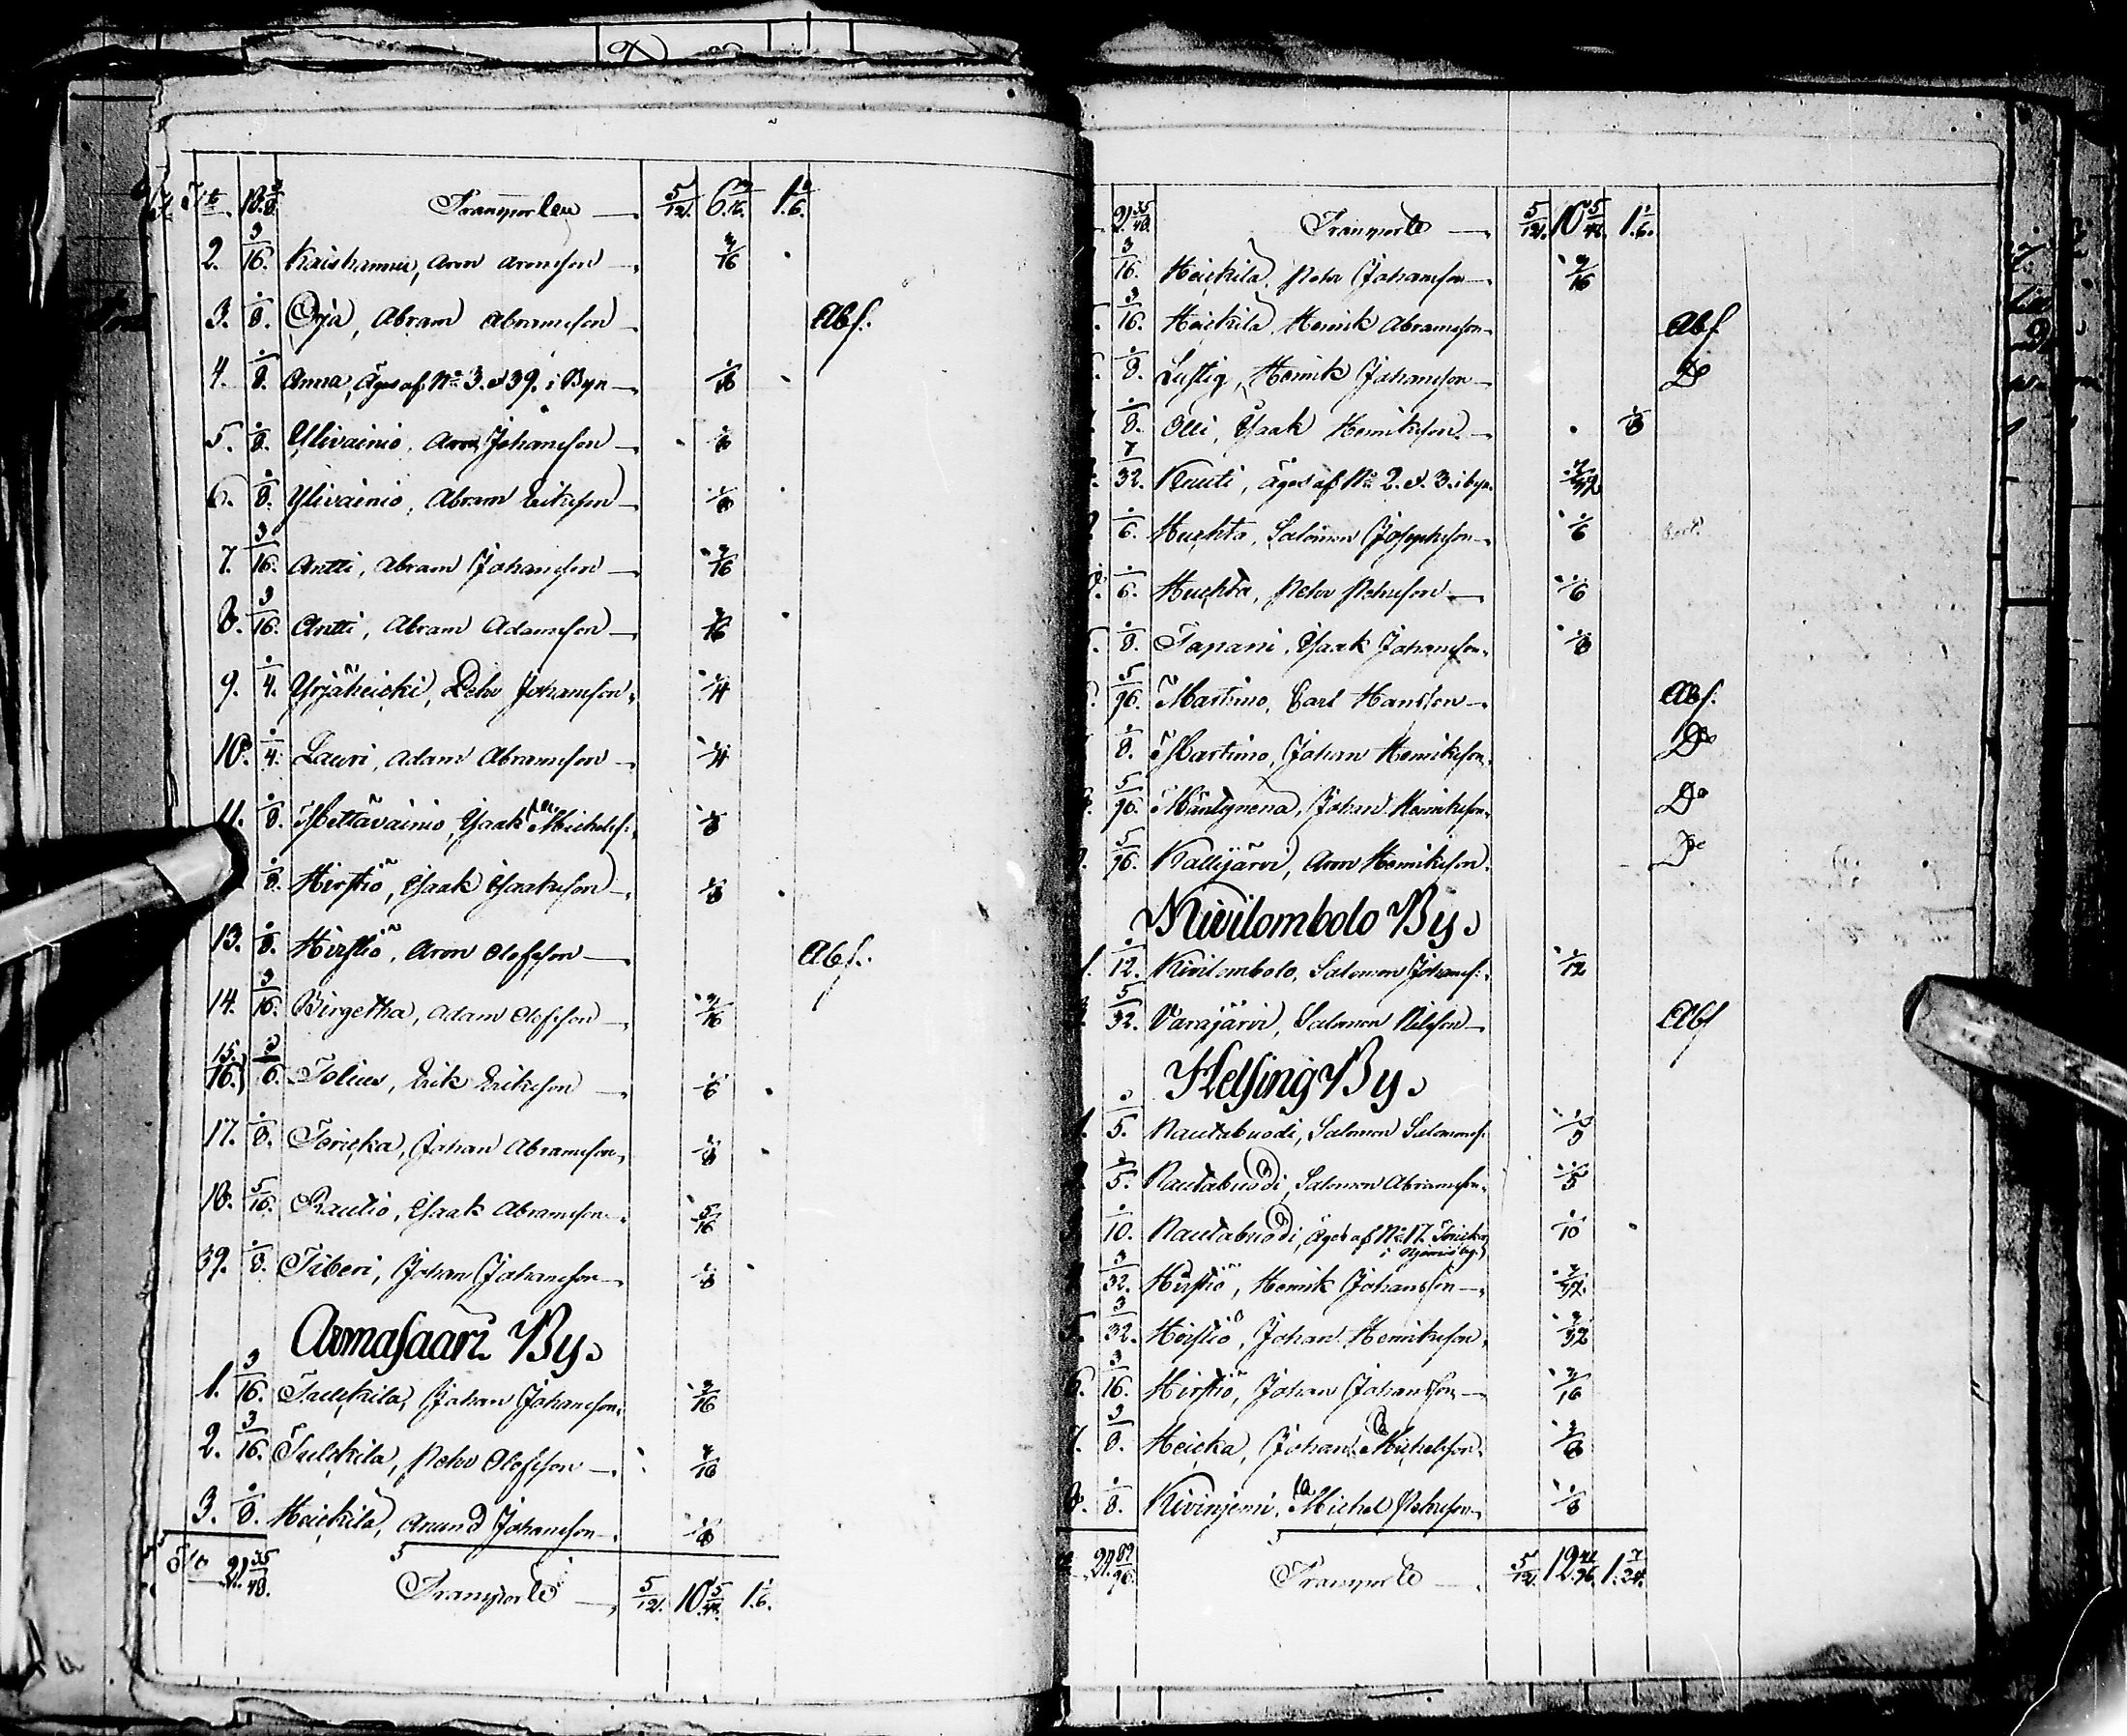 Transporteu 5/12. 6 1/6.
2. 3/16. Kaishannu, Aron Aronsson 3/16
3. 1/8. Orja, Abram Abramsson Abs.
4. 1/8. Anna, Äges af No 3. et 39. i Byn 1/8
5. 1/8. Ylivainio, Aron Johansson 1/8
6. 1/8. Ylivainio, Abram Eriksson 1/8
7. 3/16. Antti, Abram Johansson 3/16
8. 3/16. Antti, Abram Adamsson 3/16
9. 1/4. Yrjäheicki, Pehr Johansson 1/4
10. 1/4. Lauri, Adam Abramsson 1/4
11. 1/8. Mettävainio, Isaak Michelss: 1/8
1/8. Hirstiö, Isaak Isaaksson 1/8
13. 1/8. Hirstiö, Aron Olofsson Abs.
14. 3/16. Birgetha, Adam Olofsson 3/16
15. 16.) 1/6. Tolius, Erik Eriksson 1/6
17. 1/8. Toricka, Johan Abramsson 1/8
18. 5/16. Rautio, Isaak Abramsson 5/16
39. 1/8. Tiberi, Johan Johansson 1/8
Armasaari By.
1. 3/16. Taulkila, Johan Johansson 3/16
2. 3/16. Taulkila, Pehr Olofsson 3/16
3. 1/8. Heickilä, Anund Johansson 1/8
21 35/48. Transporte 5/12. 10 5/48. 1 1/6.
21 35/48. Transporte 5/12. 10 5/48. 1 1/6.
3/16. Heickilä, Pehr Johansson 3/16
3/16. Heickilä, Henrik Abramsson Abs.
1/8. Lustig, Henrik Johansson Do
1/8. Olli, Isaak Henriksson 1/8
7/32. Knuti, Äges af No 2. et. 3. i byn. 7/32
1/6. Huchta, Salomon Josephsson 1/6
1/6. Huchta, Pehr Pehrsson 1/6
1/8. Tapani, Isaak Johansson 1/8
5/96. Martimo, Carl Hansson Abs.
1/8. Martimo, Johan Henriksson Do
5/96. Mäntynenä, Johan Henriksson Do
5/96. Kallijärvi, Aron Henriksson Do
Kivilombolo By.
1. 1/12. Kivilombolo, Salomon Johanss: 1/12
5/32. Varajärvi, Salomon Nilsson Abs
Helsing By.
1. 1/5. Rautabuodi, Salomon Salomonss: 1/5
1/5. Rautabuodi, Salomon Abramsson 1/5
1/10. Rautabuodi, Äges af No 17. Toricka 1/10
3/32. Hirstiö, Henrik Johansson 3/32
5. 3/32. Hirstiö, Johan Henriksson 3/32
6. 3/16. Hirstiö, Johan Johansson 3/16
7. 3/8. Heicka, Johan Michelsson 3/8
8. 1/8. Kiviniemi, Michel Pehrsson 1/8
24 89/96. Transporte 5/12. 12 1 7/24.